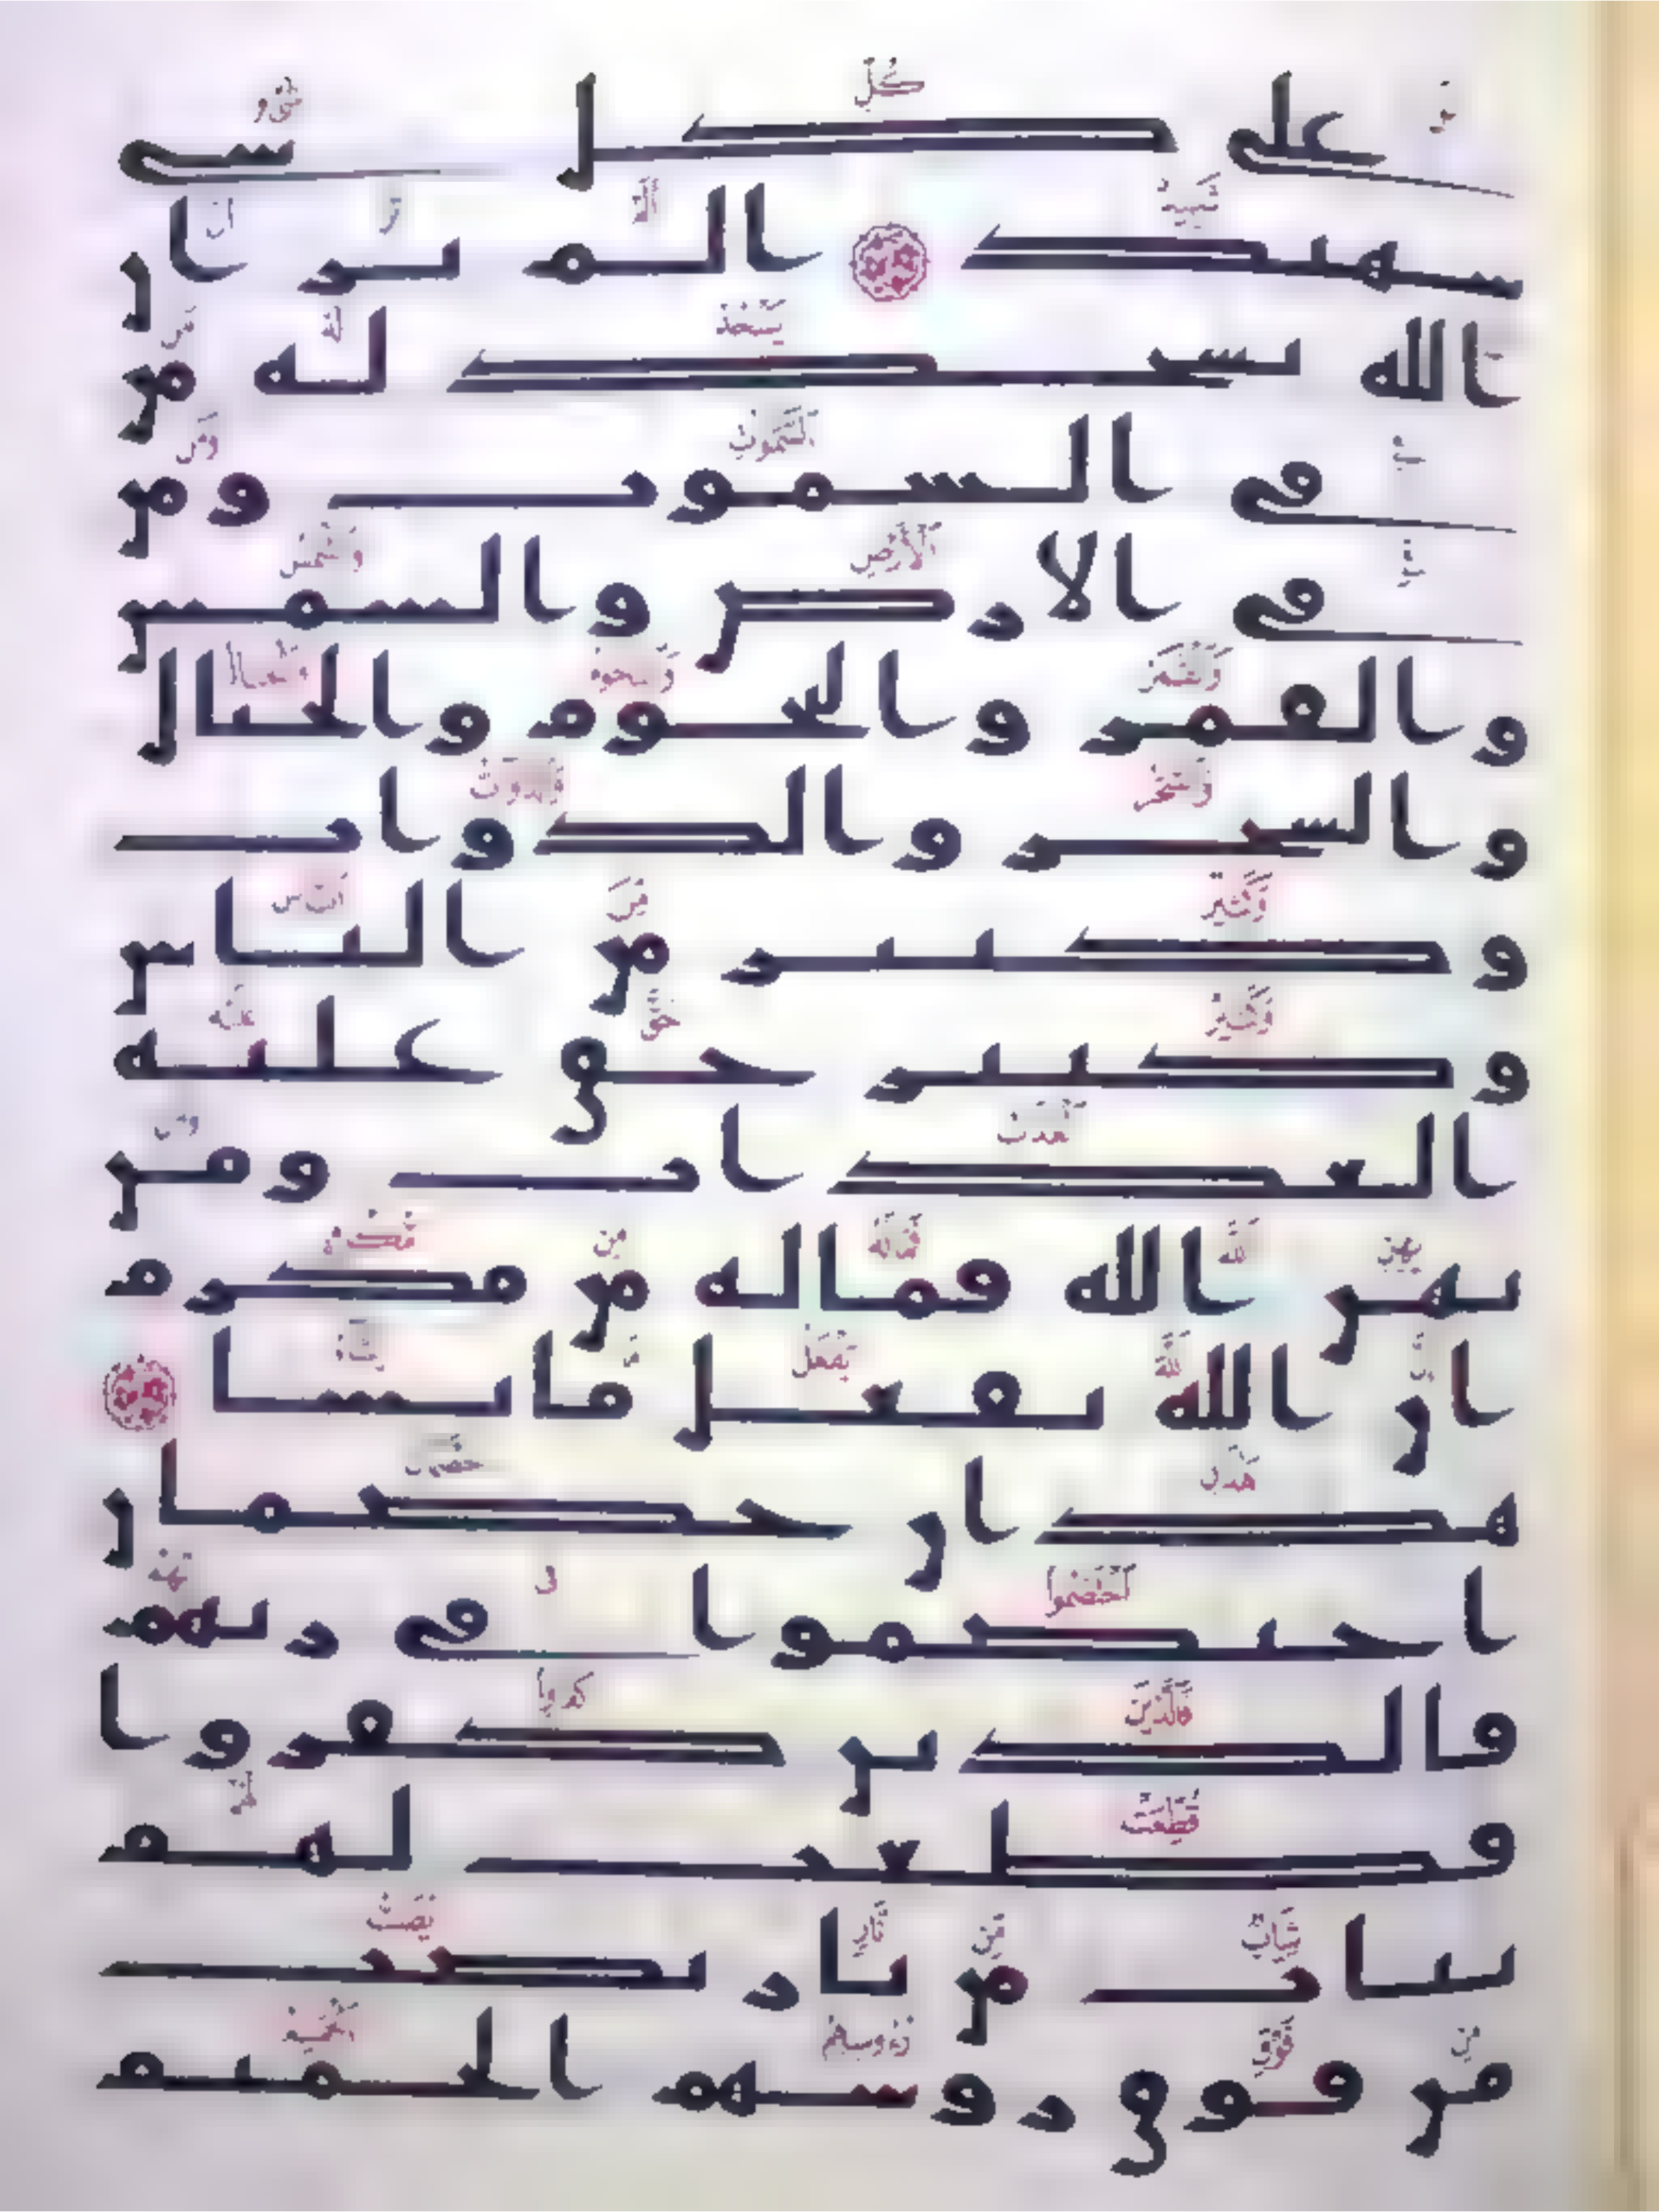 على كل شى
شهيد الم تر ان
الله يسجد له من
فى السموت ومن
فى الارض والشمس
والقمر والنجوم والجبال
والشجر والدواب
وكثير من الناس
وكثير حق عليه
العذاب ومن
يهن الله فماله من مكرم
ان الله يفعل ما يشا
هذان خصمان
اختصموا فى ربهم
فالذين كفروا
قطعت لهم
ثياب من نار يصب
من فوق روسهم الحميم